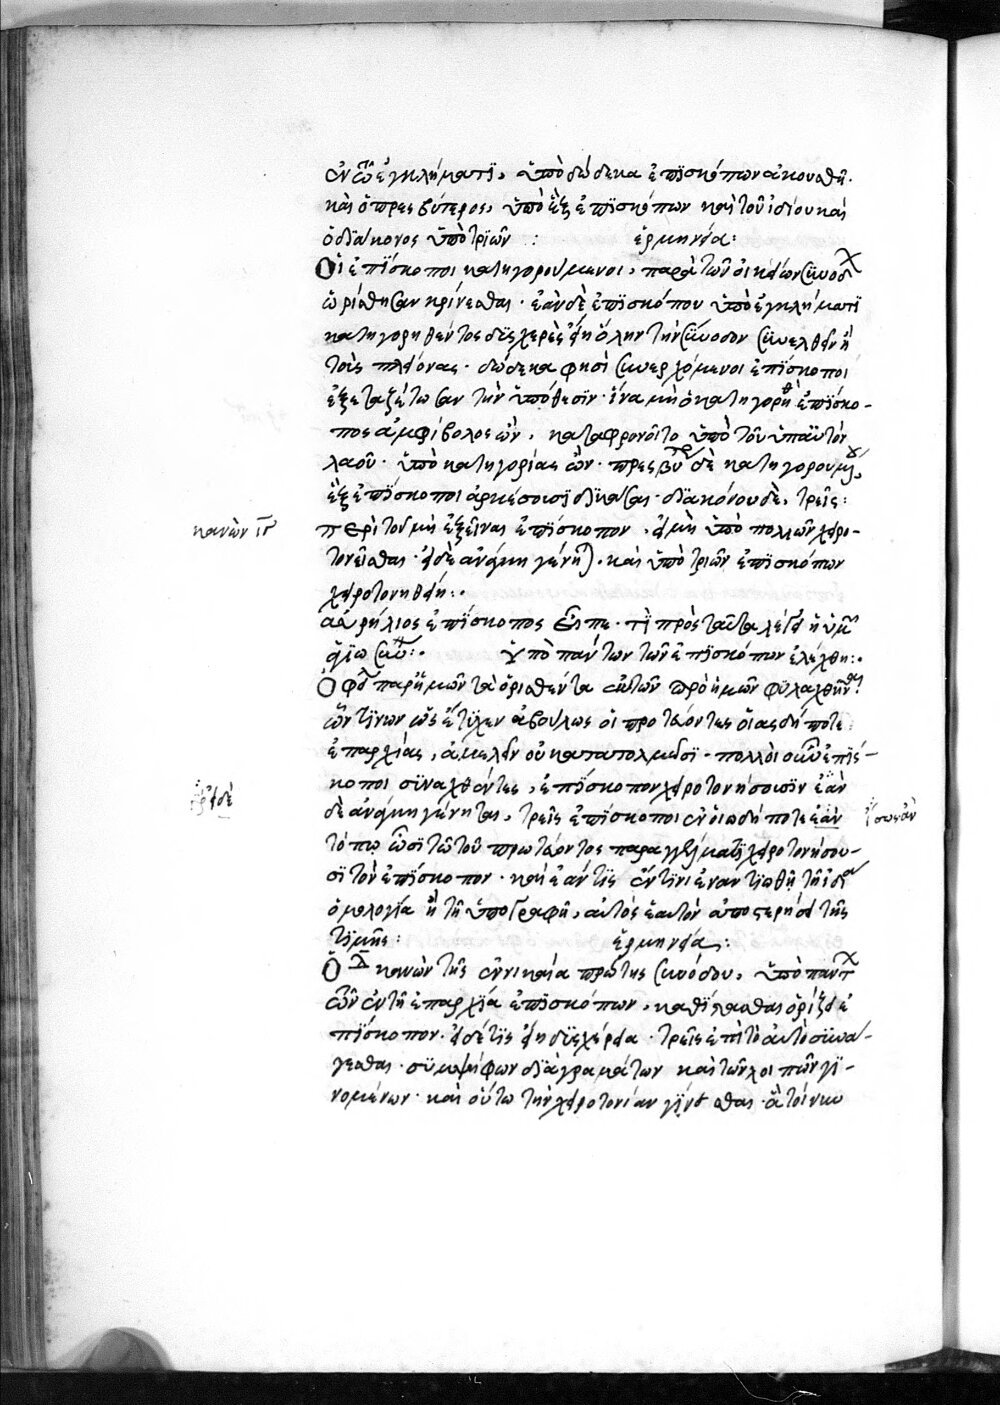 ἐν τῷ ἐγκλήματι, ὑπὸ δώδεκα ἐπισκόπων ἀκουσθῇ.
καὶ ὁ πρεσβύτερος, ὑπὸ ἓξ ἐπισκόπων καὶ τοῦ ἰδίου καὶ
ὁ διάκονος ὑπὸ τριῶν : ἑρμηνεία:
Οἱ ἐπίσκοποι κατηγορούμενοι, παρὰ τῶν οἰκείων συνόδ
ὡρίσθησαν κρίνεσθαι · ἐὰν δὲ ἐπισκόπου ὑπὸ ἐγκλήματι
κατηγορηθέντος δυσχερὲς εἴη ὅλην τὴν σύνοδον συνελθεῖν ἢ
τοὺς πλείονας · δώδεκα φησὶ συνερχόμενοι ἐπίσκοποι
ἐξεταζέτωσαν τὴν ὑπόθεσιν · ἵνα μὴ ὁ κατηγορηθ ἐπίσκο-
πος ἀμφίβολος ὢν, καταφρονοῖτο ὑπὸ τοῦ ὑπ' αὐτὸν
λαοῦ · ὑπὸ κατηγορίας ὢν · πρεσβυτερ δὲ κατηγορουμέν
ἓξ ἐπίσκοποι ἀρκέσουσι δικάσαι · διακόνου δὲ, τρεῖς:
κανὼν ιγ περὶ τοῦ μὴ ἐξεῖναι ἐπίσκοπον, εἰ μὴ ὑπὸ πολλῶν χειρο-
τονεῖσθαι · εἰ δὲ ἀνάγκη γένηται, καὶ ὑπὸ τριῶν ἐπισκόπων
χειροτονηθείη:.
αὐρήλιος ἐπίσκοπος εἶπε · τί πρὸς ταῦτα λέγει ἡ ὑμ
ἁγιωσύνη:. Ὑπὸ πάντων τῶν ἐπισκόπων ἐλέχθη:.
Ὀφ παρ' ἡμῶν τὰ ὁρισθέντα ἐκ τῶν πρὸ ἡμῶν φυλαχθῆναι
ὧν τινων ὡς ἔτυχεν ἀβούλως οἱ πρωτεύοντες οἵας δήποτε
ἐπαρχίας, ἀμελεῖν οὐ κατατολμῶσι · πολλοὶ οὖν ἐπίσ-
κοποι συναχθέντες, ἐπίσκοπον χειροτονήσουσιν ἐὰν
δὲ ἀνάγκη γένηται, τρεῖς ἐπίσκοποι ἐν οἱωδήποτε ἐὰν ἴσως ἂν
τόπῳ ὦσι τῶ τοῦ πρωτεύοντος παραγγέλματι χειροτονήσου-
σι τὸν ἐπίσκοπον · καὶ ἐάν τις ἔν τινι ἐναντιωθῇ τῇ ἰδί
ὁμολογία ἢ τῇ ὑπογραφῇ, αὐτὸς ἑαυτὸν ἀποστερήσει τῆς
τιμῆς: ἑρμηνεία:
Ὁ Δ κανὼν τῆς ἐν νικαία πρώτης συνόδου, ὑπὸ πάντ
τῶν ἐν τῇ ἐπαρχία ἐπισκόπων, καθίστασθαι ὁρίζει ἐ
πίσκοπον. εἰ δέ τις εἴη δυσχέρεια · τρεῖς ἐπὶ τὸ αὐτὸ συνά-
γεσθαι · συμψήφων διὰ γραμμάτων καὶ τῶν λοιπῶν γι-
νομένων · καὶ οὕτω τὴν χειροτονίαν γίνεσθαι ·